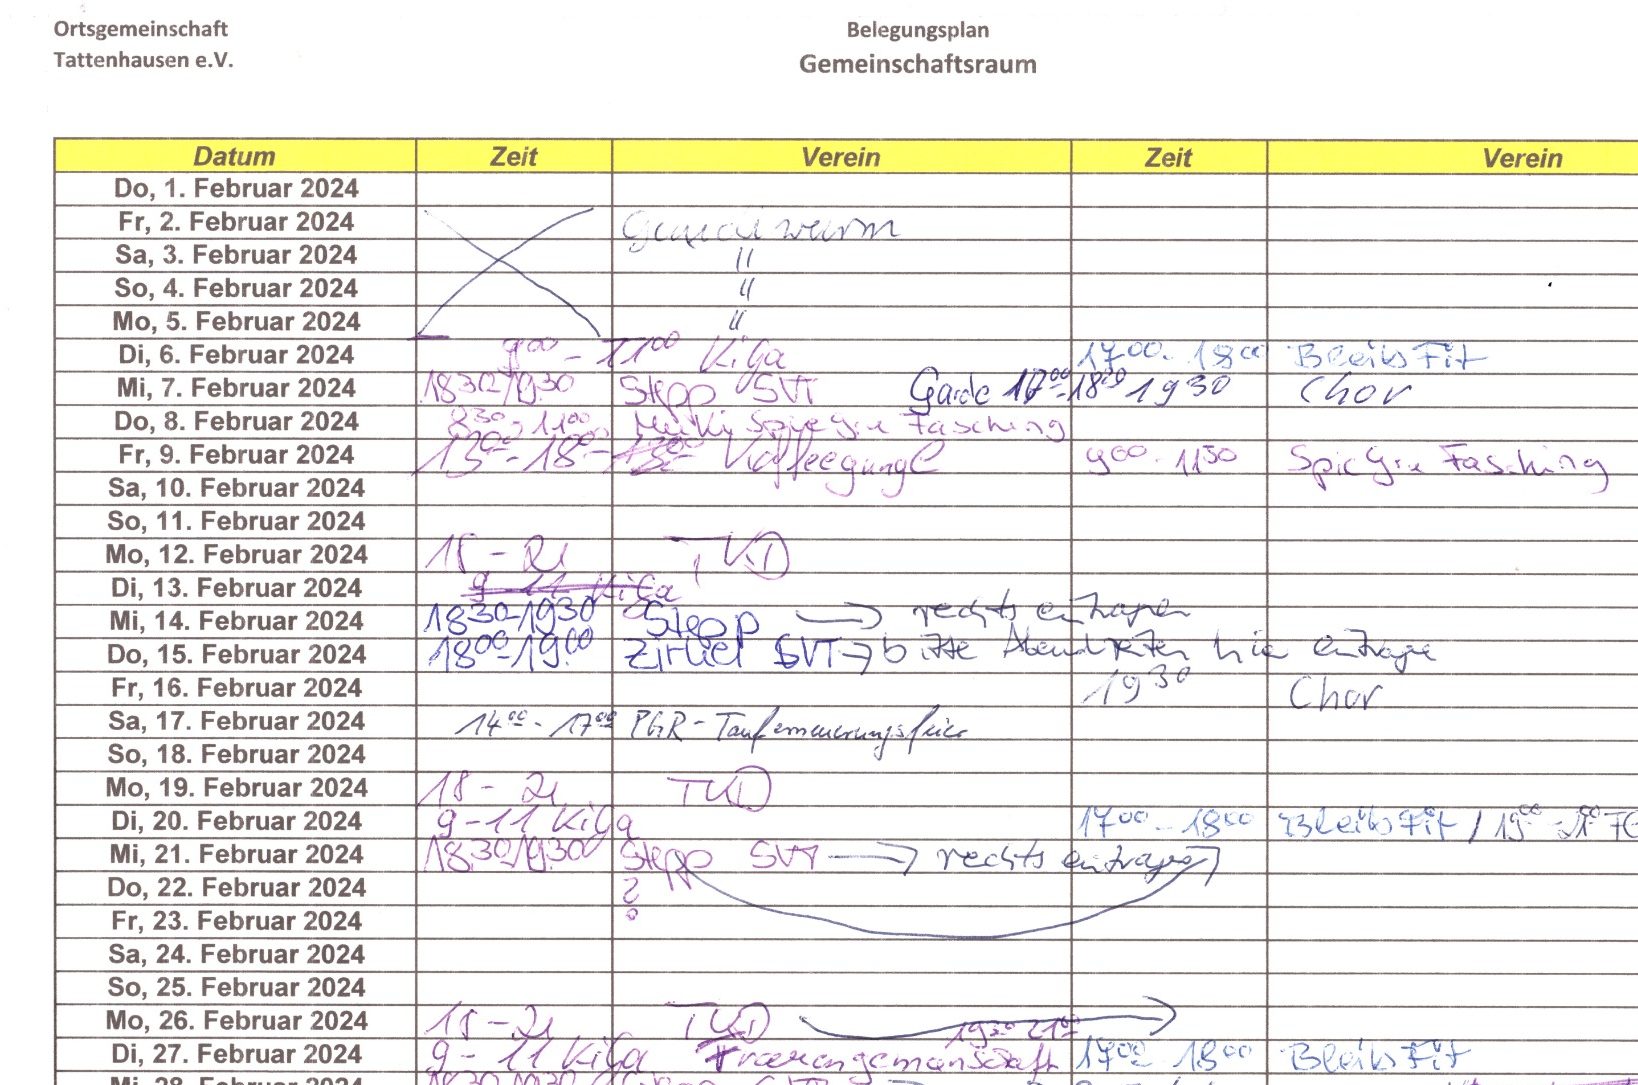 Ortsgemeinschaft
Tattenhausen e.V.
Belegungsplan
Gemeinschaftsraum
Datum Zeit Verein Zeit Verein
Do, 1. Februar 2024
Fr, 2. Februar 2024 Gaudiwurm
Sa, 3. Februar 2024 "
So, 4. Februar 2024 "
Mo, 5. Februar 2024 "
Di, 6. Februar 2024 900 - 1100 KiGa 1700 - 1800 Bleibs Fit
Mi, 7. Februar 2024 1830/1930 Stepp SVT Garde 1700-1800 1930 Chor
Do, 8. Februar 2024 830 - 1100 MuKi SpieGru Fasching
Fr, 9. Februar 2024 1300 - 1800 Kaffeegungl 900 - 1130 SpieGru Fasching
Sa, 10. Februar 2024
So, 11. Februar 2024
Mo, 12. Februar 2024 18 - 21 TKD
Di, 13. Februar 2024 9 - 11 KiGa
Mi, 14. Februar 2024 1830-1930 Stepp → rechts eintragen
Do, 15. Februar 2024 1800-1900 Zirkel SVT → bitte hier eintragen
Fr, 16. Februar 2024 1930 Chor
Sa, 17. Februar 2024 1400 - 1700 PGR - Tauferneuerungsfeier
So, 18. Februar 2024
Mo, 19. Februar 2024 18 - 21 TKD
Di, 20. Februar 2024 9 - 11 KiGa 1700 - 1800 Bleibs Fit / 1900 - 2100
Mi, 21. Februar 2024 1830/1930 Stepp SVT → rechts eintragen
Do, 22. Februar 2024 ?
Fr, 23. Februar 2024
Sa, 24. Februar 2024
So, 25. Februar 2024
Mo, 26. Februar 2024 18 - 21 TKD → 1930 2100
Di, 27. Februar 2024 9 - 11 KiGa Frauengemeinschaft 1700 - 1800 Bleibs Fit